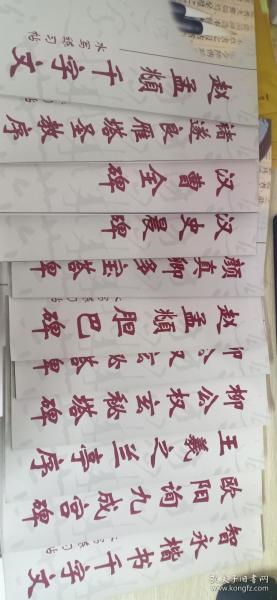 水写练习帖
赵孟頫千字文
褚遂良雁塔圣教序
汉曹全碑
汉史晨碑
颜真卿多宝塔碑
赵孟頫胆巴碑
柳公权玄秘塔碑
王羲之兰亭序
欧阳询九成宫碑
智永楷书千字文
孔夫子旧书网